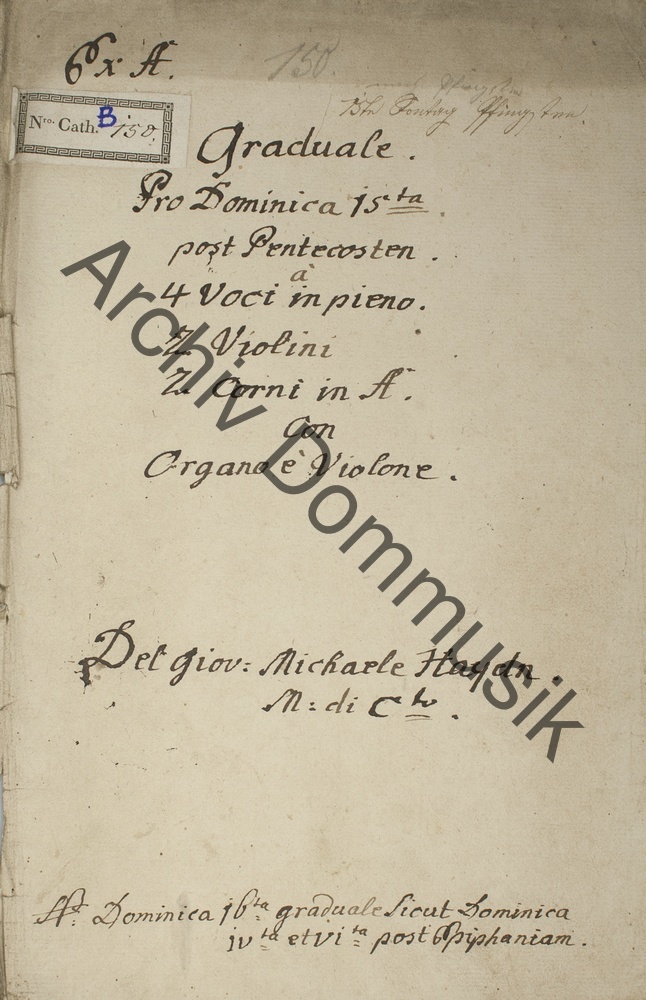 Ex A.
150.
15te Sontag Pfingsten.
Nro. Cath. B 150.
Graduale.
Pro Dominica 15ta
post Pentecosten.
à
4 Voci in pieno.
2 Violini
2 Corni in A.
Con
Organo è Violone.
Del Giov: Michaele Haydn.
M: di Cto.
Dominica 16ta graduale sicut Dominica
ivta et vita post Epiphaniam.
Archiv Dommusik